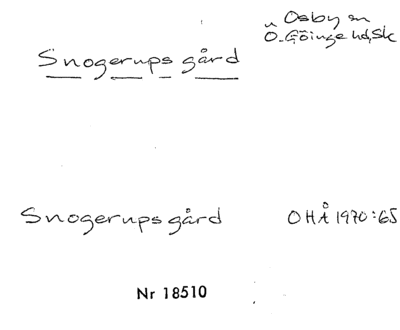 Osby sn
Ö. Göinge hd, Sk
Snogerups gård
Snogerupsgård
OHÅ 1970:65
Nr 18510